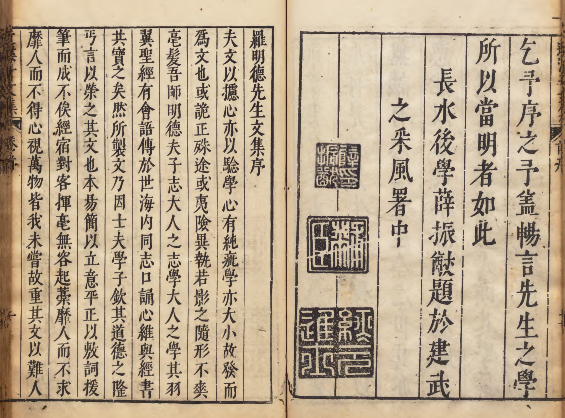 乞予序之予盖暢言先生之學
所以當明者如此
長水後學薛振猷題於建武
之采風署中
羅明德先生文集序
夫文以攄心亦以驗學心有純疵學亦大小故發而
為文也或詭正殊途或夷險異執若影之隨形不爽
毫髮吾師明德夫子志大人之志學大人之學其羽
翼聖經有會語傳於世海內同志口誦心維與經書
共寶之矣然所製文乃因士夫學子欽其道德之隆
丐言以榮之其文也本易簡以立意平正以敷詞援
筆而成不俟經宿對客揮毫無客起藁靡人而不求
靡人而不得心視萬物皆我未嘗故重其文以難人